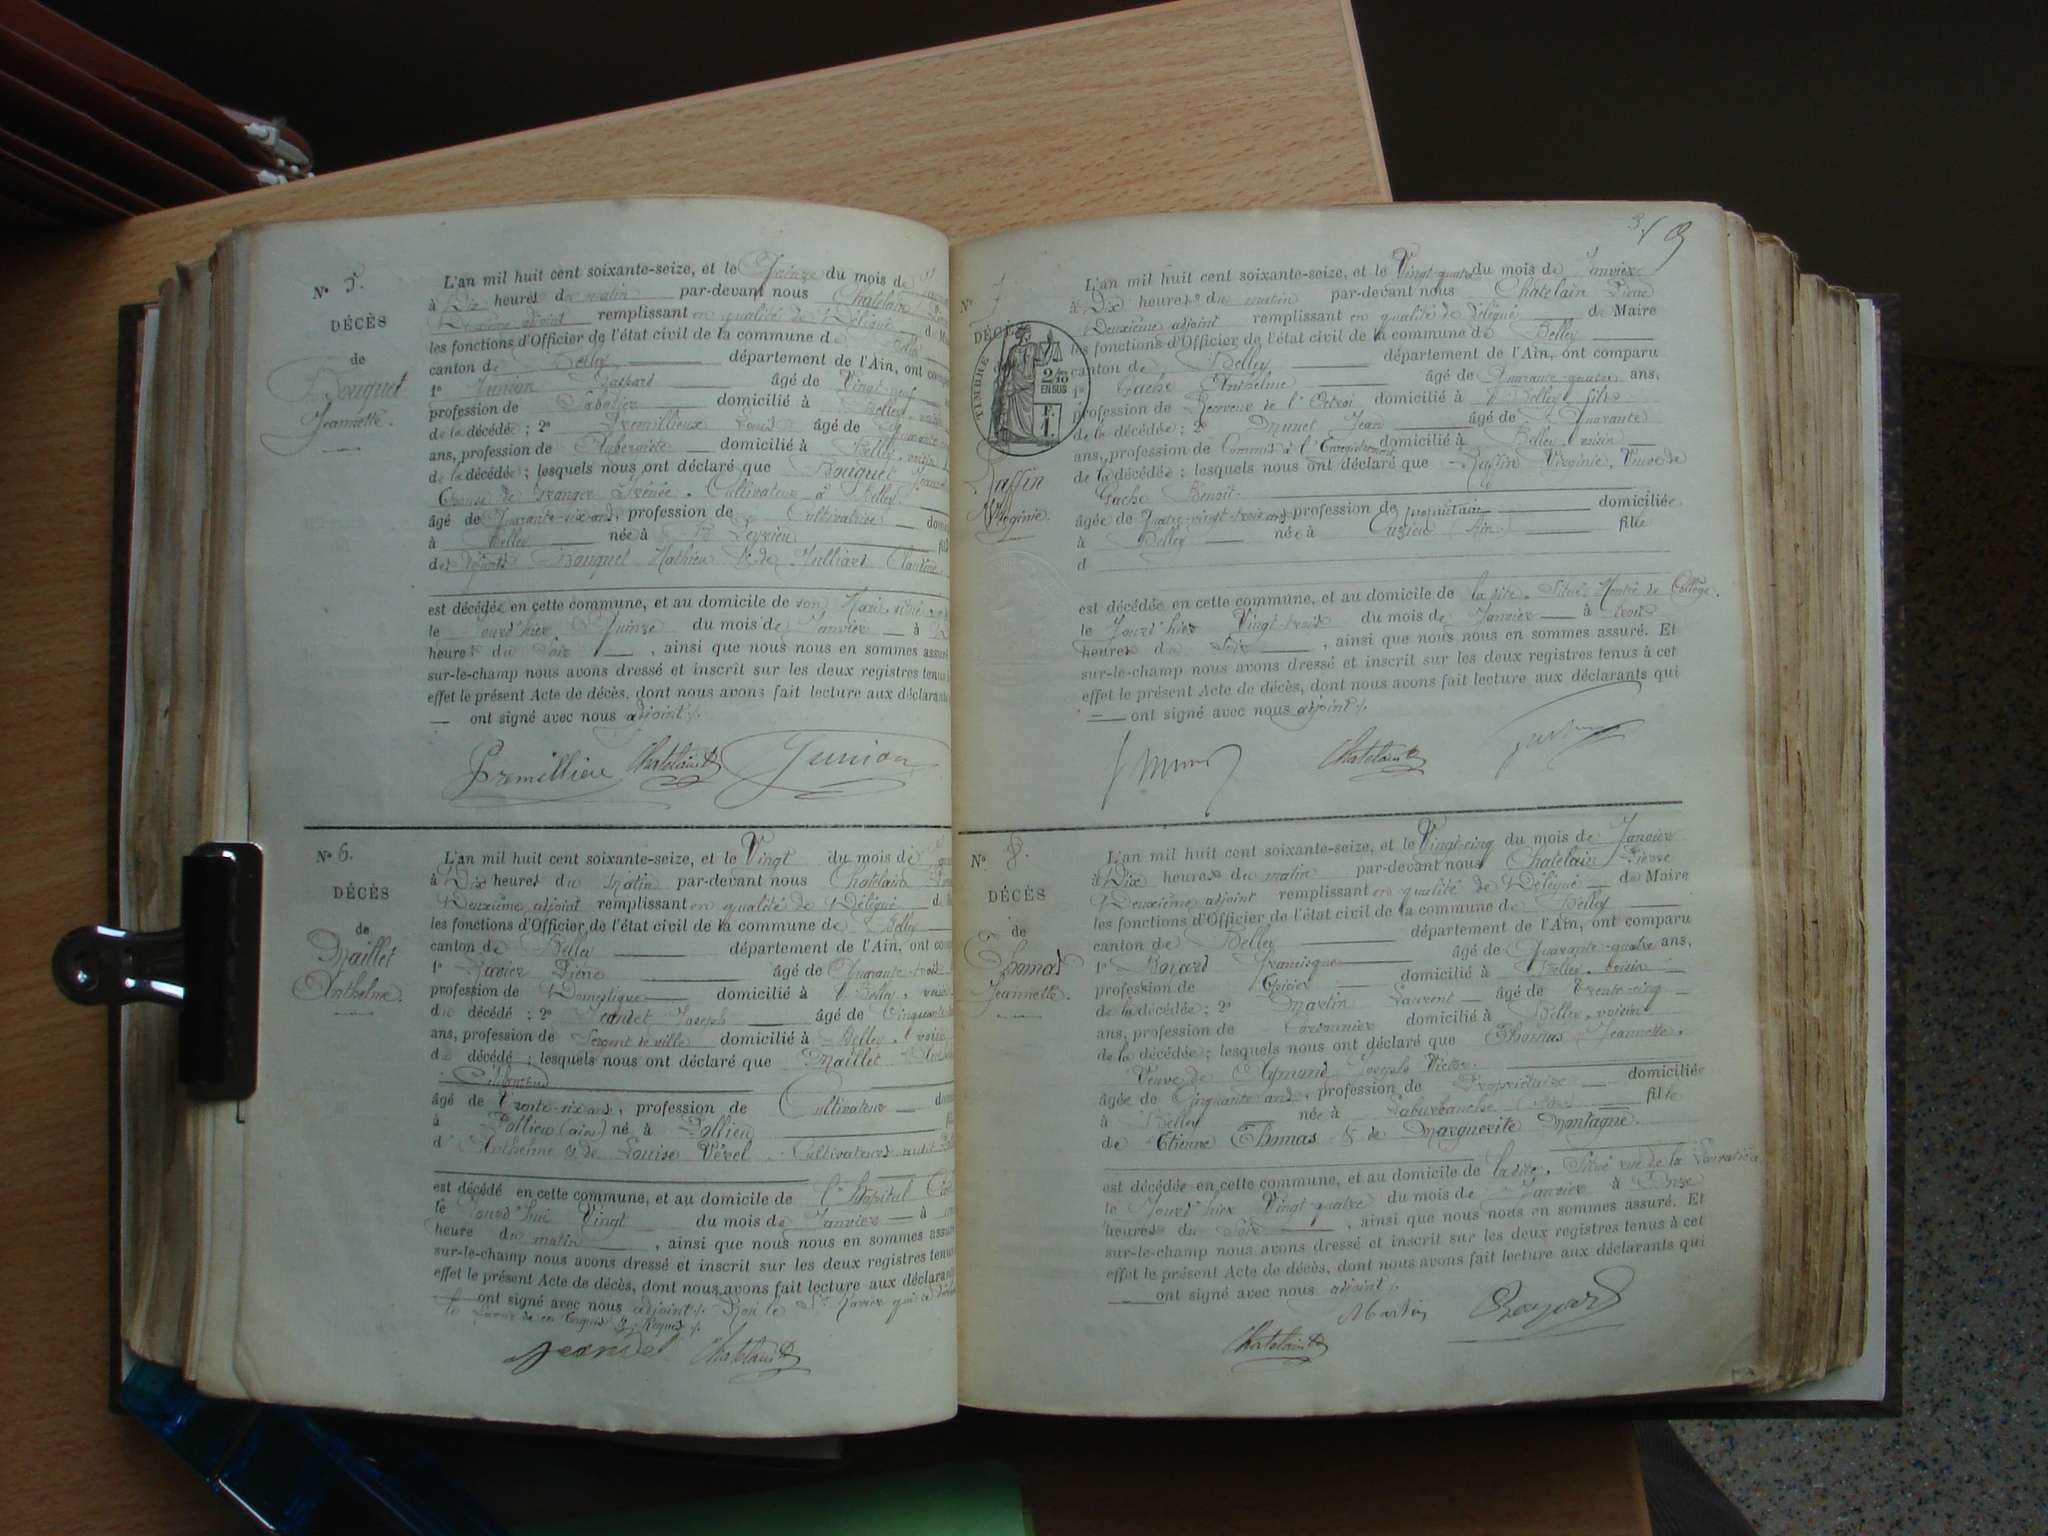 N° 5.
DÉCÈS
de
Bouquet
Jeannette.
L'an mil huit cent soixante-seize, et le Quinze du mois de
à Dix heures du matin par-devant nous Chatelain
Deuxième adjoint remplissant en qualité de Délégué d
les fonctions d'Officier de l'état civil de la commune de Belley
canton de Belley département de l'Ain, ont
1° Junion Gaspard âgé de Vingt neuf
profession de Sabotier domicilié à Belley, voisin
de la décédée ; 2° Premillieux Louis âgé de
ans, profession de Aubergiste domicilié à Belley, voisin
de la décédée ; lesquels nous ont déclaré que Bouquet
Epouse de Granger Irénée. Cultivateur à Belley
âgé de Quarante-six ans, profession de Cultivatrice
à Belley née à Leyrieu
des défunts Bouquet Mathieu & de Julliard Claudine
est décédée en cette commune, et au domicile de son Mari, situé
le Jourd'hier Quinze du mois de Janvier à
heures du Soir , ainsi que nous nous en sommes assuré
sur-le-champ nous avons dressé et inscrit sur les deux registres tenus
effet le présent Acte de décès, dont nous avons fait lecture aux déclarants
ont signé avec nous adjoint ./.
Premillieu Chatelain Junion
N° 6.
DÉCÈS
de
Maillet
Anthelme.
L'an mil huit cent soixante-seize, et le Vingt du mois de
à Dix heures du matin par-devant nous Chatelain
Deuxième adjoint remplissant en qualité de Délégué d
les fonctions d'Officier de l'état civil de la commune de Belley
canton de Belley département de l'Ain, ont
1° Ravier Pierre âgé de Quarante-trois
profession de Domestique domicilié à Belley, voisin
du décédé ; 2° Jeandet Joseph âgé de Cinquante
ans, profession de Sergent de ville domicilié à Belley, voisin
du décédé ; lesquels nous ont déclaré que Maillet
Célibataire
âgé de Trente-six ans, profession de Cultivateur
à Pollieu (ain) né à Pollieu
d'Anthelme & de Louise Vével . Cultivateurs audit
est décédé en cette commune, et au domicile de l'hôpital
le Jourd'hui Vingt du mois de Janvier à
heure du matin , ainsi que nous nous en sommes assuré
sur-le-champ nous avons dressé et inscrit sur les deux registres tenus
effet le présent Acte de décès, dont nous avons fait lecture aux déclarants
ont signé avec nous adjoint ./. Non le Sr Ravier qui a déclaré
ne Savoir de ce Enquis & Requis ./.
Jeandet Chatelain
3/9
N° 7
DÉCÈS
TIMBRE
2/10
EN SUS
F.
1.
Raffin
Virginie.
L'an mil huit cent soixante-seize, et le Vingt-quatre du mois de Janvier
à Dix heures du matin par-devant nous Chatelain Pierre
Deuxième adjoint remplissant en qualité de délégué du Maire
les fonctions d'Officier de l'état civil de la commune de Belley
canton de Belley département de l'Ain, ont comparu
1° Gache Anthelme âgé de Quarante-quatre ans,
profession de Receveur de l'Octroi domicilié à Belley, fils
de la décédée ; 2° Munet Jean âgé de Quarante
ans, profession de Commis à l'Enregistrement domicilié à Belley, voisin
de la décédée ; lesquels nous ont déclaré que Raffin Virginie, Veuve de
Gache Benoit.
âgée de Quatre-vingt-trois ans, profession de propriétaire domiciliée
à Belley née à Cuzieu (Ain) fille
d
est décédée en cette commune, et au domicile de la dite. Situé Montée du Collège.
le Jourd'hier Vingt-trois du mois de Janvier à trois
heures du Soir , ainsi que nous nous en sommes assuré. Et
sur-le-champ nous avons dressé et inscrit sur les deux registres tenus à cet
effet le présent Acte de décès, dont nous avons fait lecture aux déclarants qui
ont signé avec nous adjoint ./.
Chatelain
N° 8.
DÉCÈS
de
Thomas
Jeannette.
L'an mil huit cent soixante-seize, et le Vingt-cinq du mois de Janvier
à Dix heures du matin par-devant nous Chatelain Pierre
Deuxième adjoint remplissant en qualité de Délégué du Maire
les fonctions d'Officier de l'état civil de la commune de Belley
canton de Belley département de l'Ain, ont comparu
1° Francisque âgé de Quarante-quatre ans,
profession de Epicier domicilié à Belley, voisin
de la décédée ; 2° Martin Laurent âgé de Trente-cinq
ans, profession de Cordonnier domicilié à Belley, voisin
de la décédée ; lesquels nous ont déclaré que Thomas Jeannette.
Veuve de Aymond Joseph Victor.
âgée de Cinquante ans, profession de Propriétaire domiciliée
à Belley née à fille
de Etienne Thomas & de Marguerite Montagne.
est décédée en cette commune, et au domicile de la dite, Situé rue de la
le Jourd'hier Vingt-quatre du mois de Janvier à Onze
heures du Soir , ainsi que nous nous en sommes assuré. Et
sur-le-champ nous avons dressé et inscrit sur les deux registres tenus à cet
effet le présent Acte de décès, dont nous avons fait lecture aux déclarants qui
ont signé avec nous adjoint ./.
Martin
Chatelain